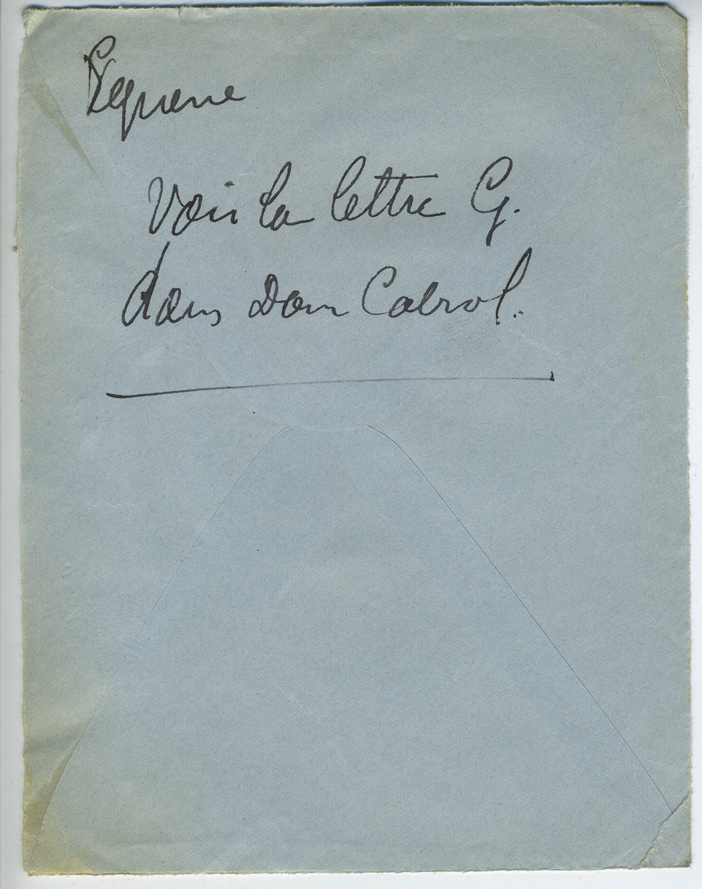 Voir la lettre G.
dans Dom Cabrol.